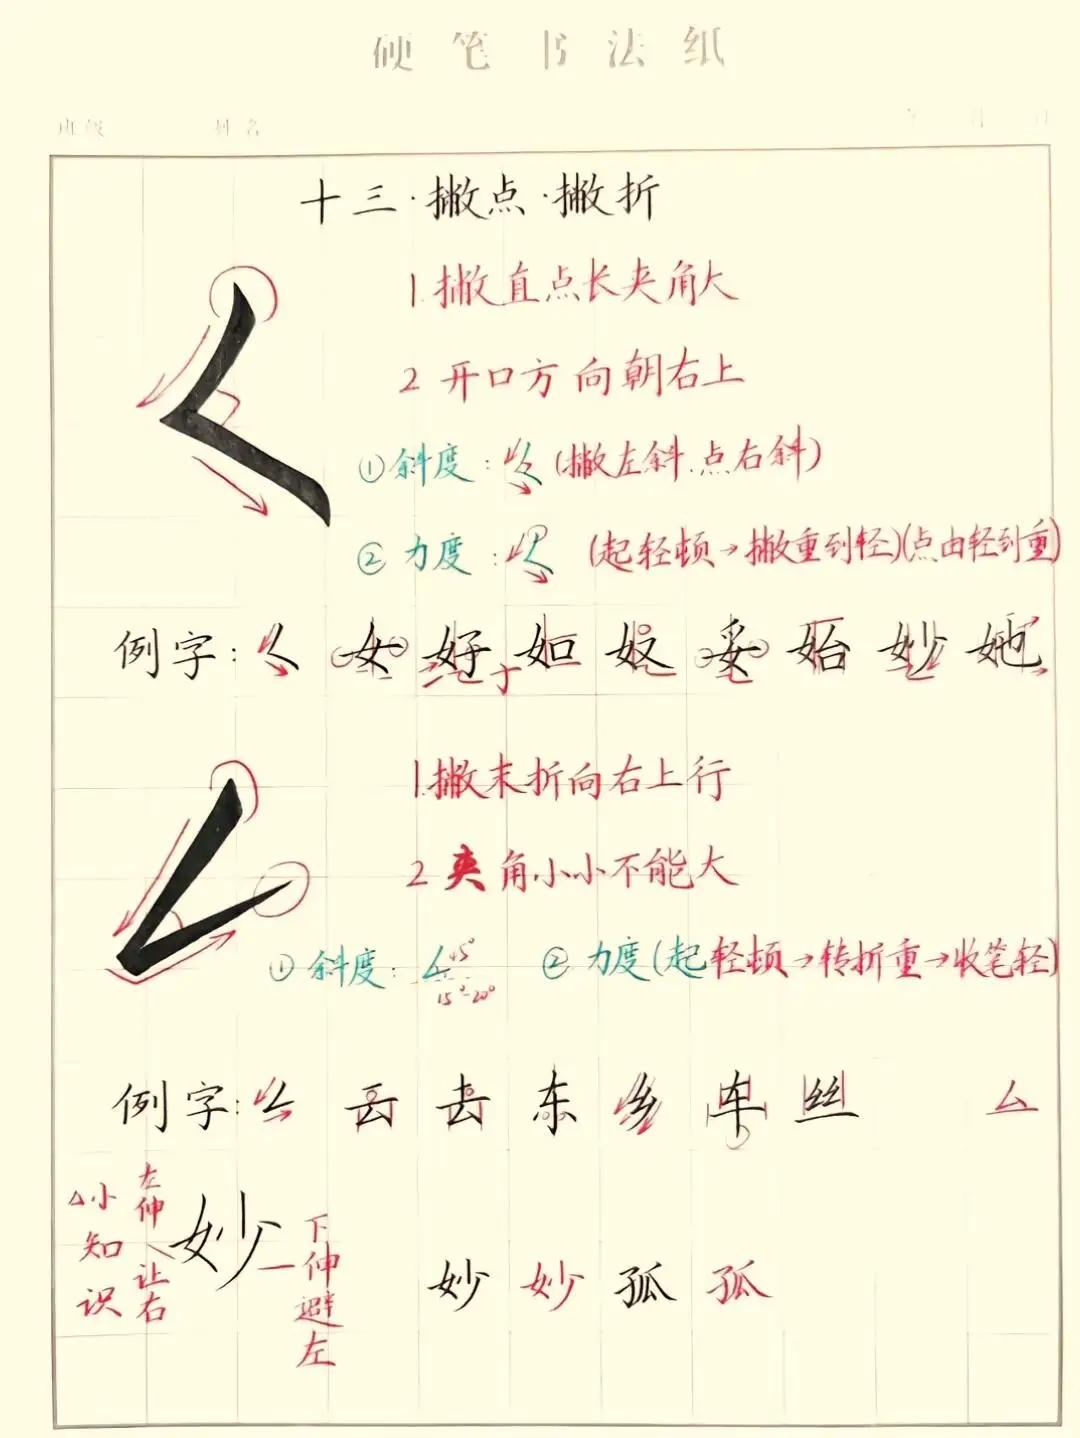 硬笔书法纸
班级 姓名 年 月 日
十三·撇点·撇折
1.撇直点长夹角大
2 开口方向朝右上
①斜度:𡿨(撇左斜.点右斜)
②力度:𡿨(起轻顿→撇重到轻)(点由轻到重)
例字:𡿨 女 好 如 奴 妥 始 妙 她
于
1.撇末折向右上行
2 夹角小小不能大
①斜度:∠45° 15°-20° ②力度(起轻顿→转折重→收笔轻)
例字: 云 去 东 乡 车 丝 厶
△小知识
左伸让右
妙
下伸避左
妙 妙 孤 孤